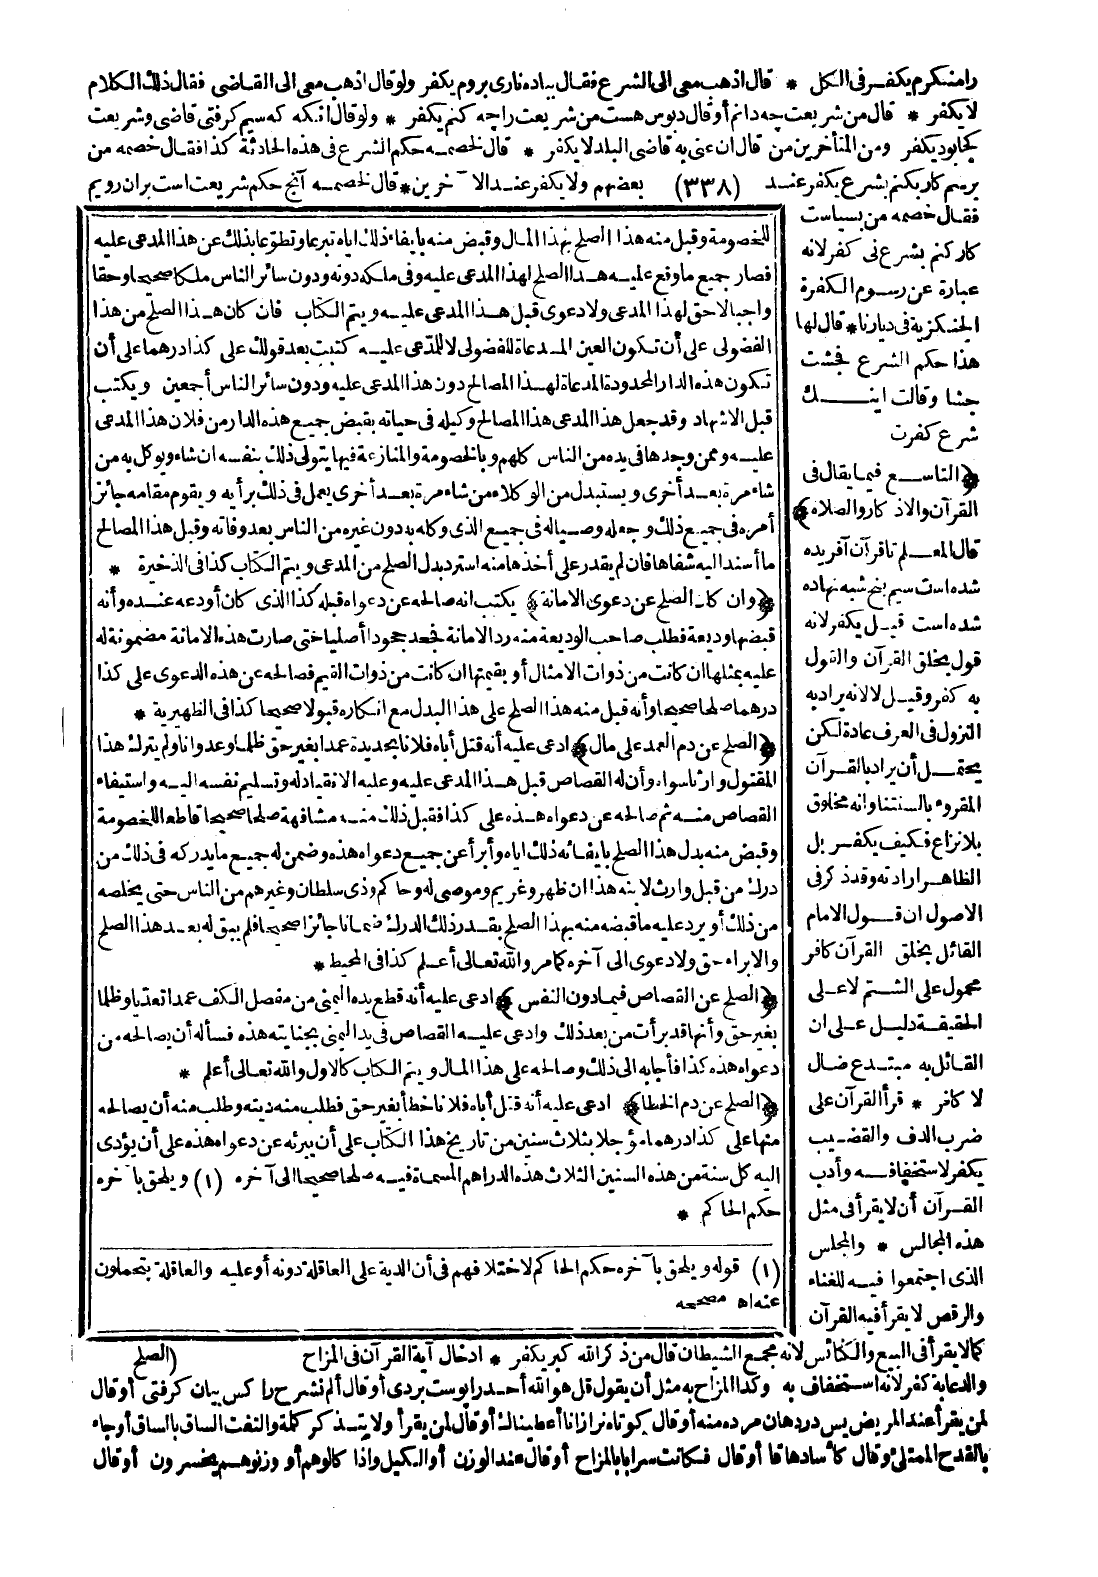 رامنكرم يكفر في الكل * قال اذهب معى الى الشرع فقال بياده نارى بروم يكفر ولو قال اذهب معى الى القاضى فقال ذلك الكلام
لا يكفر * قال من شريعت چه دانم أو قال دبوس هست من شريعت راچه كنم يكفر * ولو قال انكه كه سيم كرفتى قاضى وشريعت
كجا بود يكفر ومن المتأخرين من قال ان عنى به قاضى البلد لا يكفر * قال لخصمه حكم الشرع فى هذه الحادثة كذا فقال خصمه من
برسم كار بكنم بشرع يكفر عند (٣٣٨) بعضهم ولا يكفر عند الآخرين * قال لخصمه آنچ حكم شريعت است بران رويم
فقال خصمه من بسياست
كار كنم بشرع نى كفر لانه
عبارة عن رسوم الكفرة
الجنكزية فى ديارنا * قال لها
هذا حكم الشرع فجشت
جشا وقالت اينك
شرع كفرت
﴿التاسع فيما يقال فى
القرآن والاذكار والصلاه﴾
قال المعلم تا قرآن آفريده
شده است سيم پنج شبه نهاده
شده است قيل يكفر لانه
قول بخلق القرآن والقول
به كفر وقيل لا لانه يراد به
النزول فى العرف عادة لكن
يحتمل أن يراد بالقرآن
المقروء بالسنتنا وانه مخلوق
بلا نزاع فكيف يكفر بل
الظاهر ارادته وقد ذكر فى
الاصول ان قول الامام
القائل بخلق القرآن كافر
محمول على الشتم لا على
الحقيقة دليل على ان
القائل به مبتدع ضال
لا كافر * قرأ القرآن على
ضرب الدف والقضيب
يكفر لاستخفافه وأدب
القرآن أن لا يقرأ فى مثل
هذه المجالس * والمجلس
الذى اجتمعوا فيه للغناء
والرقص لا يقرأ فيه القرآن
كما لا يقرأ فى البيع والكنائس لانه مجمع الشيطان قال من ذكر الله كبر يكفر * ادخال آية القرآن فى المزاح
والدعابة كفر لانه استخفاف به وكذا المزاح به مثل أن يقول قل هو الله أحد را پوست بردى أو قال ألم نشرح را كس بيان كرفتى أو قال
لمن يقرأ عند المريض يس در دهان مرده منه أو قال كوتاه تر از انا أعطيناك أو قال لمن يقرأ ولا يتذكر كلمة والتفت الساق بالساق أو جاء
بالقدح الممتلئ وقال كأسا دهاقا أو قال فكانت سرابا بالمزاح أو قال عند الوزن أو الكيل واذا كالوهم أو وزنوهم يخسرون أو قال
للخصومة وقبل منه هذا الصلح بهذا المال وقبض منه بايفاء ذلك اياه تبرعا وتطوعا بذلك عن هذا المدعى عليه
فصار جميع ما وقع عليه هذا الصلح لهذا المدعى عليه وفى ملكه دونه ودون سائر الناس ملكا صحيحا وحقا
واجبا لا حق لهذا المدعى ولا دعوى قبل هذا المدعى عليه ويتم الكتاب فان كان هذا الصلح من هذا
الفضولى على أن تكون العين المدعاة للفضولى لا للمدعى عليه كتبت بعد قولك على كذا درهما على أن
تكون هذه الدار المحدودة المدعاة لهذا المصالح دون هذا المدعى عليه ودون سائر الناس أجمعين ويكتب
قبل الاشهاد وقد جعل هذا المدعى هذا المصالح وكيله فى حياته بقبض جميع هذه الدار من فلان هذا المدعى
عليه وممن وجدها فى يده من الناس كلهم وبالخصومة والمنازعة فيها يتولى ذلك بنفسه ان شاء ويوكل به من
شاء مرة بعد أخرى ويستبدل من الوكلاء من شاء مرة بعد أخرى يعمل فى ذلك برأيه ويقوم مقامه جائز
أمره فى جميع ذلك وجعله وصيا له فى جميع الذى وكله به دون غيره من الناس بعد وفاته وقبل هذا المصالح
ما أسند اليه شفاها فان لم يقدر على أخذها منه استرد بدل الصلح من المدعى ويتم الكتاب كذا فى الذخيرة *
﴿وان كان الصلح عن دعوى الامانة﴾ يكتب انه صالحه عن دعواه قبله كذا الذى كان أودعه عنده وأنه
قبضها وديعة فطلب صاحب الوديعة منه رد الامانة فجحد جحودا أصليا حتى صارت هذه الامانة مضمونة له
عليه بمثلها ان كانت من ذوات الامثال أو بقيمتها ان كانت من ذوات القيم فصالحه عن هذه الدعوى على كذا
درهما صلحا صحيحا وأنه قبل منه هذا الصلح على هذا البدل مع انكاره قبولا صحيحا كذا فى الظهيرية *
﴿الصلح عن دم العمد على مال﴾ ادعى عليه أنه قتل أباه فلانا بحديدة عمدا بغير حق ظلما وعدوانا ولم يترك هذا
المقتول وارثا سواه وأن له القصاص قبل هذا المدعى عليه وعليه الانقياد له وتسليم نفسه اليه واستيفاء
القصاص منه ثم صالحه عن دعواه هذه على كذا فقبل ذلك منه مشافهة صلحا صحيحا قاطعا للخصومة
وقبض منه بدل هذا الصلح بايفائه ذلك اياه وأبرأ عن جميع دعواه هذه وضمن له جميع ما يدركه فى ذلك من
درك من قبل وارث لابنه هذا ان ظهر وغريم وموصى له وحاكم وذى سلطان وغيرهم من الناس حتى يخلصه
من ذلك أو يرد عليه ما قبضه منه بهذا الصلح بقدر ذلك الدرك ضمانا جائزا صحيحا فلم يبق له بعد هذا الصلح
والابراء حق ولا دعوى الى آخره كما مر والله تعالى أعلم كذا فى المحيط *
﴿الصلح عن القصاص فيما دون النفس﴾ ادعى عليه أنه قطع يده اليمنى من مفصل الكف عمدا تعديا وظلما
بغير حق وأنها قد برأت من بعد ذلك وادعى عليه القصاص فى يد اليمنى بجنايته هذه فسأله أن يصالحه من
دعواه هذه كذا فأجابه الى ذلك وصالحه على هذا المال ويتم الكتاب كالاول والله تعالى أعلم *
﴿الصلح عن دم الخطا﴾ ادعى عليه أنه قتل أباه فلانا خطأ بغير حق فطلب منه ديته وطلب منه أن يصالحه
منها على كذا درهما مؤجلا بثلاث سنين من تاريخ هذا الكتاب على أن يبرئه عن دعواه هذه على أن يؤدى
اليه كل سنة من هذه السنين الثلاث هذه الدراهم المسماة فيه صلحا صحيحا الى آخره (١) ويلحق بآخره
حكم الحاكم *
(١) قوله ويلحق بآخره حكم الحاكم لاختلافهم فى أن الدية على العاقلة دونه أو عليه والعاقلة يتحملون
عنه اه مصححه
(الصلح